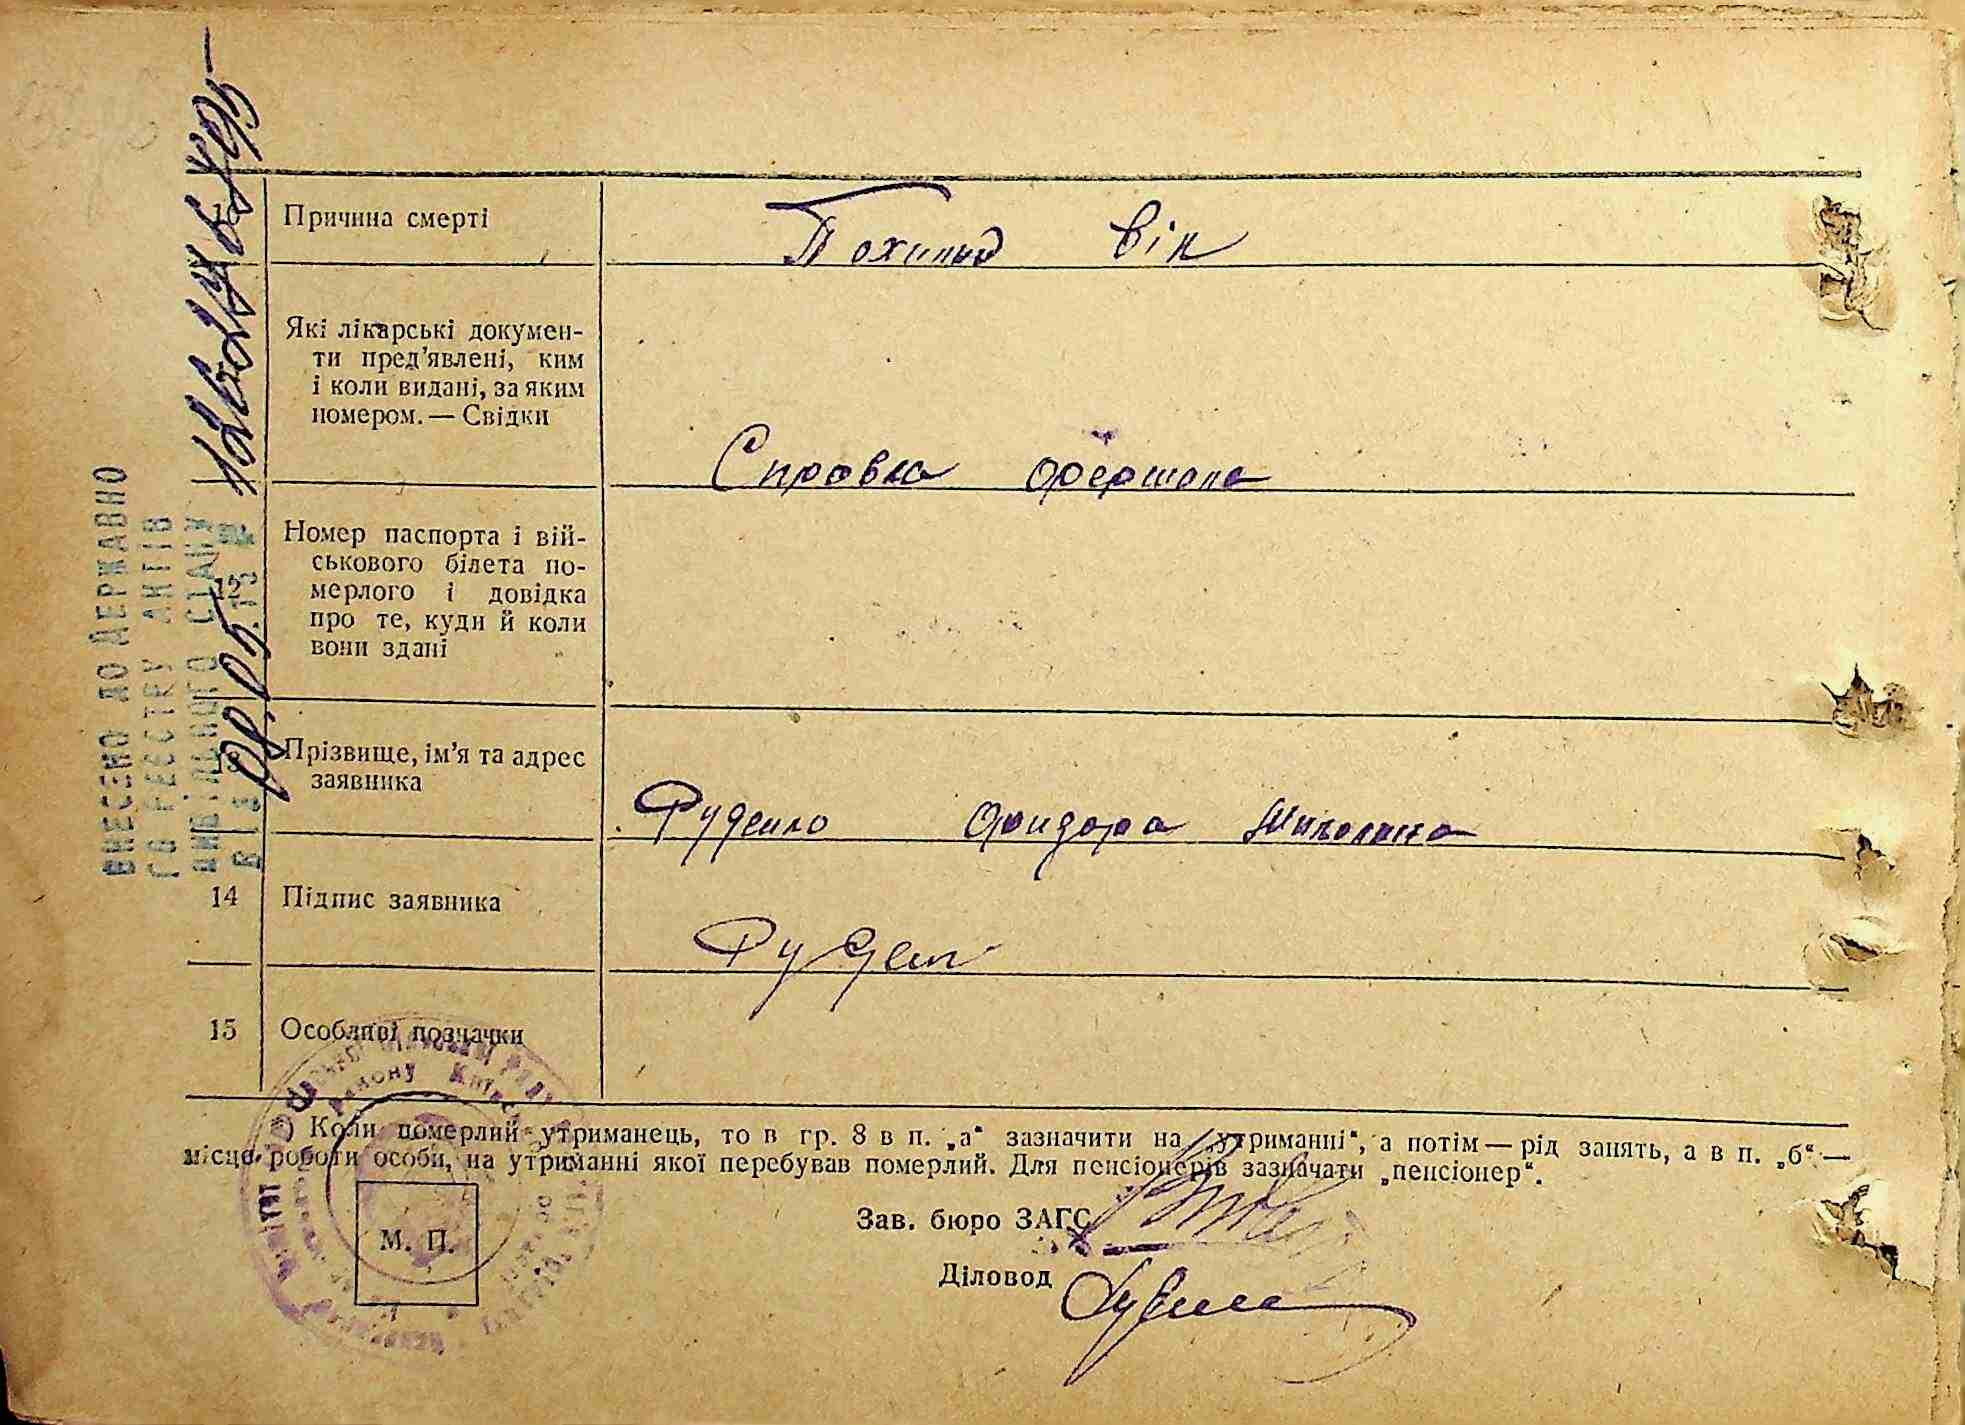 Причина смерті
Похилий вік
Які лікарські докумен-
ти пред'явлені, ким
і коли видані, за яким
номером. — Свідки
Справка фершала
12
Номер паспорта і вій-
ськового білета по-
мерлого і довідка
про те, куди й коли
вони здані
13
Прізвище, ім'я та адрес
заявника
Руденко Фидора
14
Підпис заявника
Руден
15
Особливі позначки
*) Коли померлий утриманець, то в гр. 8 в п. „а“ зазначити на „утриманні“, а потім — рід занять, а в п. „б“ —
місце роботи особи, на утриманні якої перебував померлий. Для пенсіонерів зазначати „пенсіонер“.
М. П.
Зав. бюро ЗАГС
Діловод
ВНЕСЕНО ДО ДЕРЖАВНО
ГО РЕЄСТРУ АКТІВ
ЦИВІЛЬНОГО СТАНУ